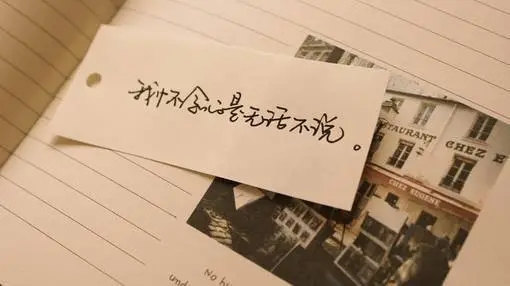 我们不会总是无话不说。
STAURANT CHEZ E
CHEZ EUGENE
No